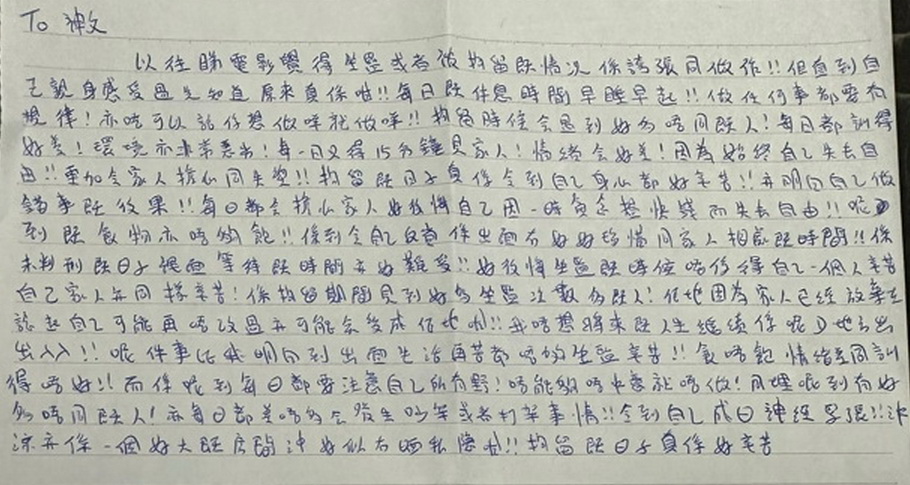 To 神父
以往睇電影覺得坐監或者被拘留既情況係誇張同做作!! 但直到自
己親身感受過先知道原來真係咁!! 每日既休息時間早睡早起!! 做任何事都要有
規律! 亦唔可以話你想做咩就做咩!! 拘留時候會遇到好多唔同既人! 每日都訓得
好差! 環境亦非常惡劣! 每一日又得15分鐘見家人! 情緒會好差! 因為始終自己失去自
由!! 更加令家人擔心同失望!! 拘留既日子真係令到自己身心都好辛苦!! 亦明白自己做
錯事既後果!! 每日都會擔心家人好後悔自己因一時貪念搵快錢而失去自由!! 呢
到既食物亦唔夠飽!! 係到令自己反省係出面冇好好珍惜同家人相處既時間!! 係
未判刑既日子裡面等待既時間亦好難受!! 好後悔坐監既時候唔係得自己一個人辛苦
自己家人亦同樣辛苦! 係拘留期間見到好多坐監次數多既人! 佢地因為家人已經放棄
諗起自己可能再唔改過亦可能會變成佢地咁!! 我唔想將來既人生繼續係呢D地方出出
入入!! 呢件事令我明白到出面生活再苦都唔夠坐監辛苦!! 食唔飽情緒差同訓
得唔好!! 而係呢到每日都要注意自己所有野! 唔能夠唔中意就唔做! 同埋呢到有好
多唔同既人! 亦每日都差唔多會發生吵架或者打架事情!! 令到自己成日神經緊張!! 沖
涼亦係一個好大既房間沖好似冇晒私隱咁!! 拘留既日子真係好辛苦